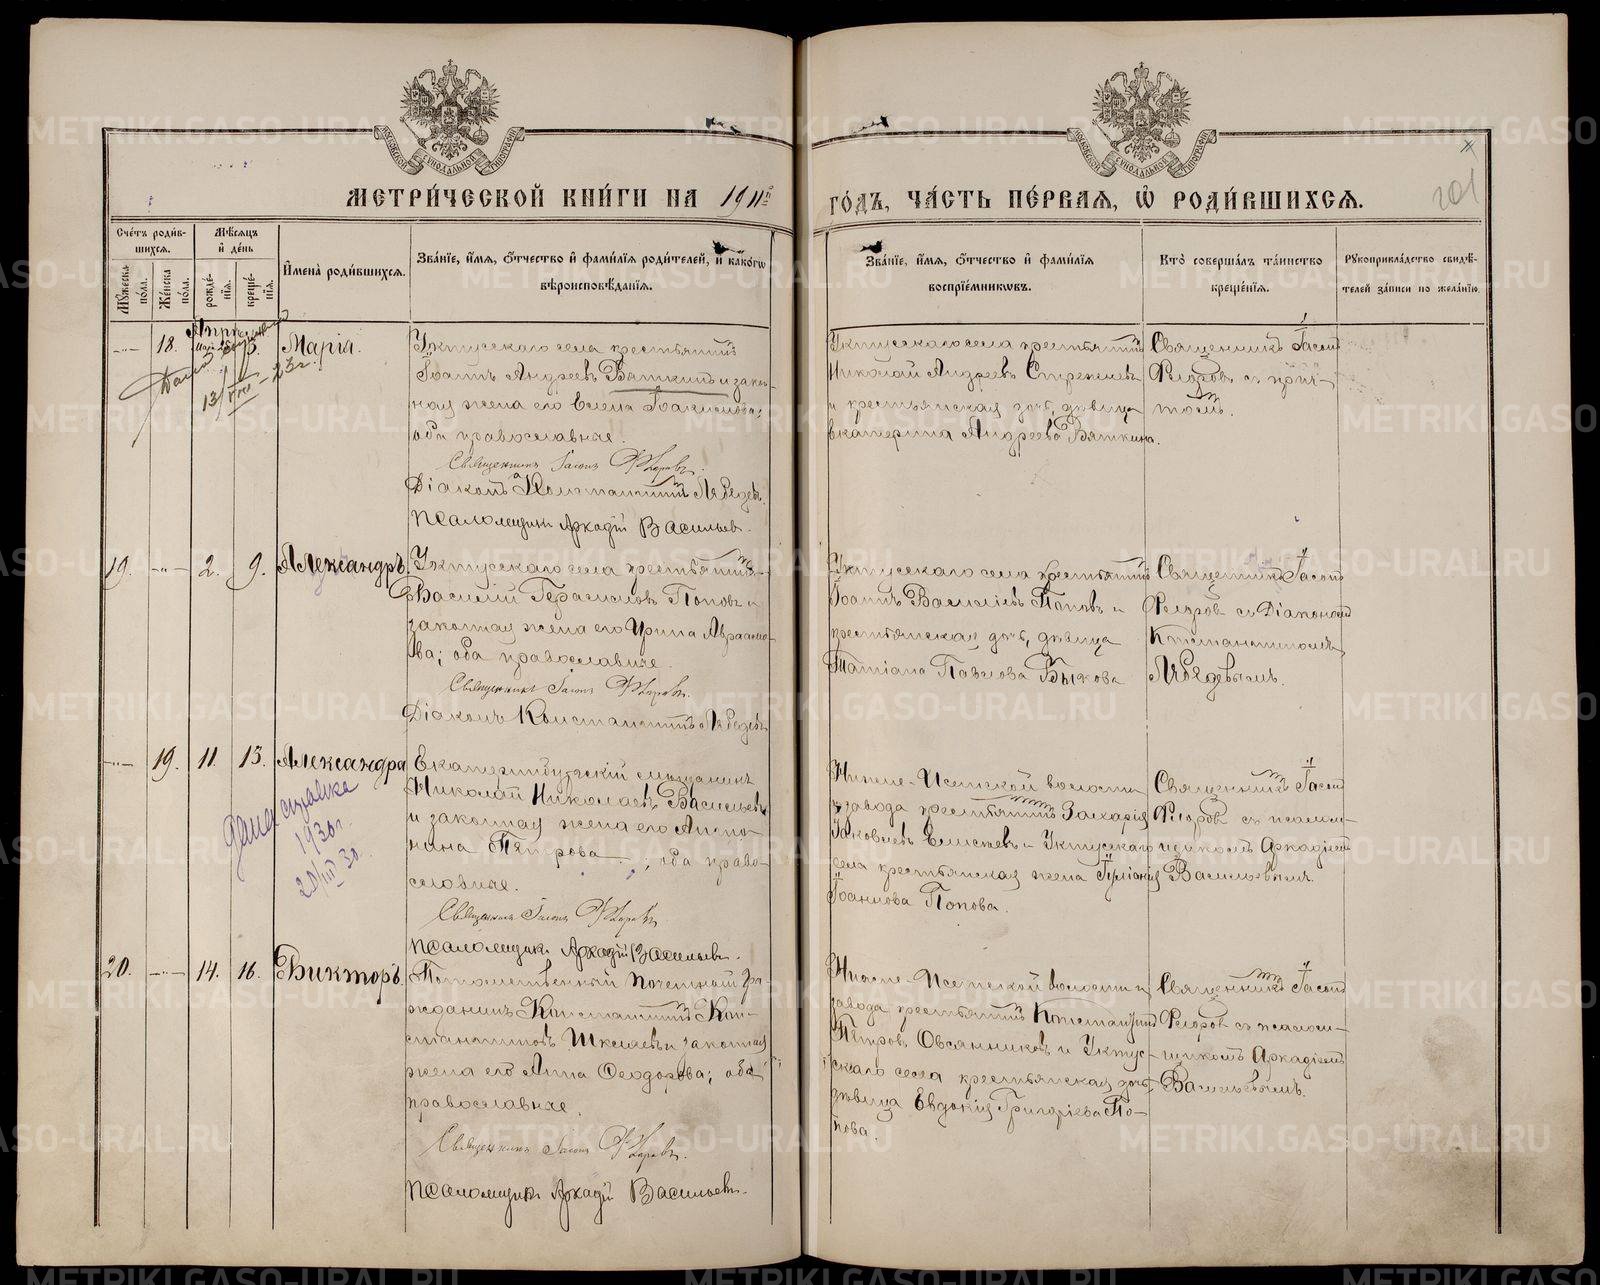 МЕТРИЧЕСКОЙ КНИГИ НА 1911й
ГОДЪ, ЧАСТЬ ПЕРВАЯ, Ѡ РОДИВШИХСЯ.
201
Счетъ родив-
шихся.
Мужеска
пола.
Женска
пола.
Мѣсяцъ
и день
рожде-
нія.
креще-
нія.
Имена родившихся.
Званіе, имя, отчество и фамилія родителей, и какогѡ
вѣроисповѣданія.
Званіе, имя, отчество и фамилія
воспріемниковъ.
Кто совершалъ таинство
крещенія.
Рукоприкладство свидѣ-
телей записи по желанію.
18.
Марія.
Уктусскаго села крестьянинъ
Іоаннъ Андреевъ Вяткинъ и закон-
ная жена его Елена Іоакимова;
оба православные.
Священникъ Іасонъ Ѳедоровъ.
Діаконъ Константинъ Лебедевъ.
Псаломщикъ Аркадій Васильевъ.
Уктусскаго села крестьянинъ
Николай Андреевъ
и крестьянская дочь, дѣвица
Екатерина Андреева Вяткина.
Священникъ Іасонъ
Ѳедоровъ съ прич-
томъ.
19.
2.
9.
Александръ.
Уктусскаго села крестьянинъ
Василій Герасимовъ Поповъ и
законная жена его Ирина Авраамо-
ва; оба православные.
Священникъ Іасонъ Ѳедоровъ.
Діаконъ Константинъ Лебедевъ
Уктусскаго села крестьянинъ
Іоаннъ Васильевъ Поповъ и
крестьянская дочь, дѣвица
Татіана Павлова Быкова
Священникъ Іасонъ
Ѳедоровъ съ Діакономъ
Константиномъ
Лебедевымъ.
19.
11.
13.
Александра
Дана справка
1930г.
20/III 30.
Екатеринбургскій мѣщанинъ
Николай Николаевъ Васильевъ
и законная жена его Анто-
нина Петрова; оба право-
славные.
Священникъ Іасонъ Ѳедоровъ
Псаломщикъ Аркадій Васильевъ.
Нижне-Исетской волости
и завода крестьянинъ Захарія
Іаковлевъ Елисеевъ и Уктусскаго
села крестьянская жена
Іоаннова Попова.
Священникъ Іасонъ
Ѳедоровъ съ псалом-
щикомъ Аркадіемъ
Васильевымъ.
20.
14.
16.
Викторъ.
Потомственный почетный гра-
жданинъ Константинъ Кон-
стантиновъ и законная
жена его Анна Ѳеодорова; оба
православные.
Священникъ Іасонъ Ѳедоровъ.
Псаломщикъ Аркадій Васильевъ.
Нижне-Исетской волости и
завода крестьянинъ Константинъ
Петровъ Овсянниковъ и Уктус-
скаго села крестьянская дочь,
дѣвица Евдокія Григоріева По-
пова.
Священникъ Іасонъ
Ѳедоровъ съ псалом-
щикомъ Аркадіемъ
Васильевымъ.
METRIKI.GASO-URAL.RU